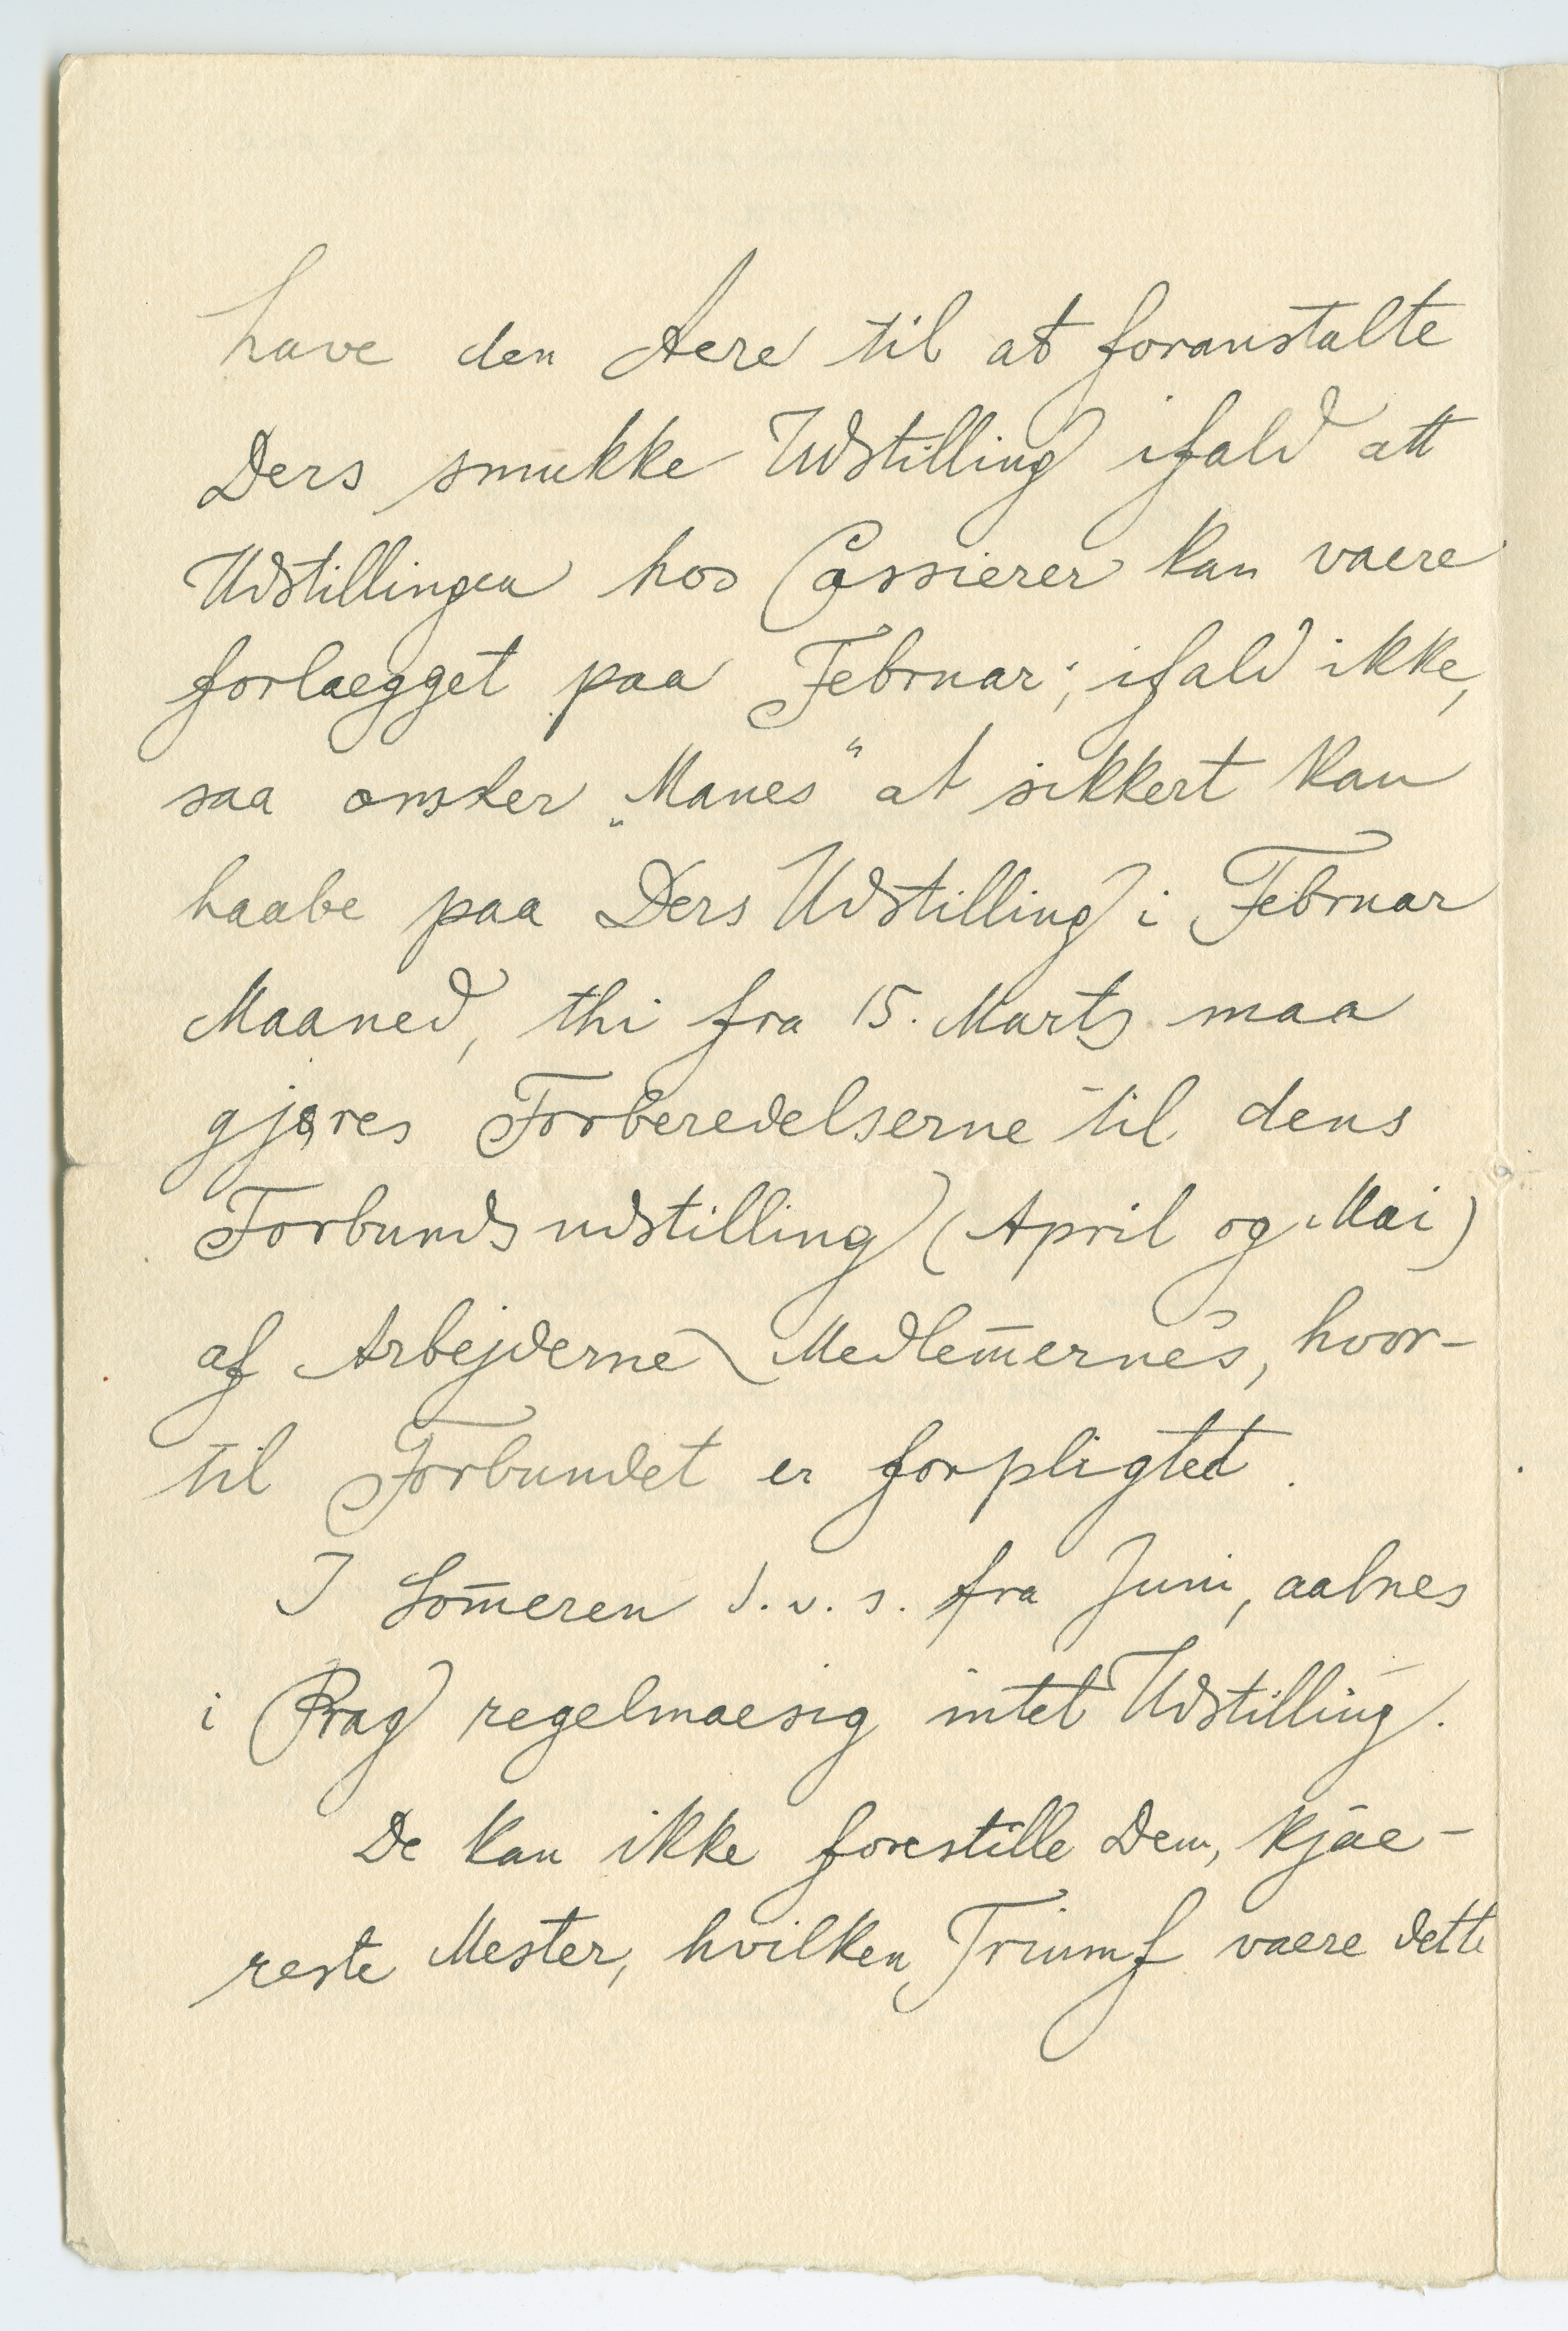 have den Aere til at foranstalte
Ders smukke Udstilling ifald att
Udstillingen hos Cassierer kan vaere
forlaegget paa Februar; ifald ikke,
saa onsker „Manes“ at sikkert kan
haabe paa Ders Udstilling i Februar
Maaned, thi fra 15. Marts maa
gjøres Forberedelserne til dens
Forbundsudstilling (April og Mai)
af Arbejderne Medlem̄ernes, hvor-
til Forbundet er forpligted.
I Som̄eren d.v.s. fra Juni, aabnes
i Prag regelmaesig intet Udstilling.
De kan ikke forestille Dem, kjae-
reste Mester, hvilken Triumf vaere dette